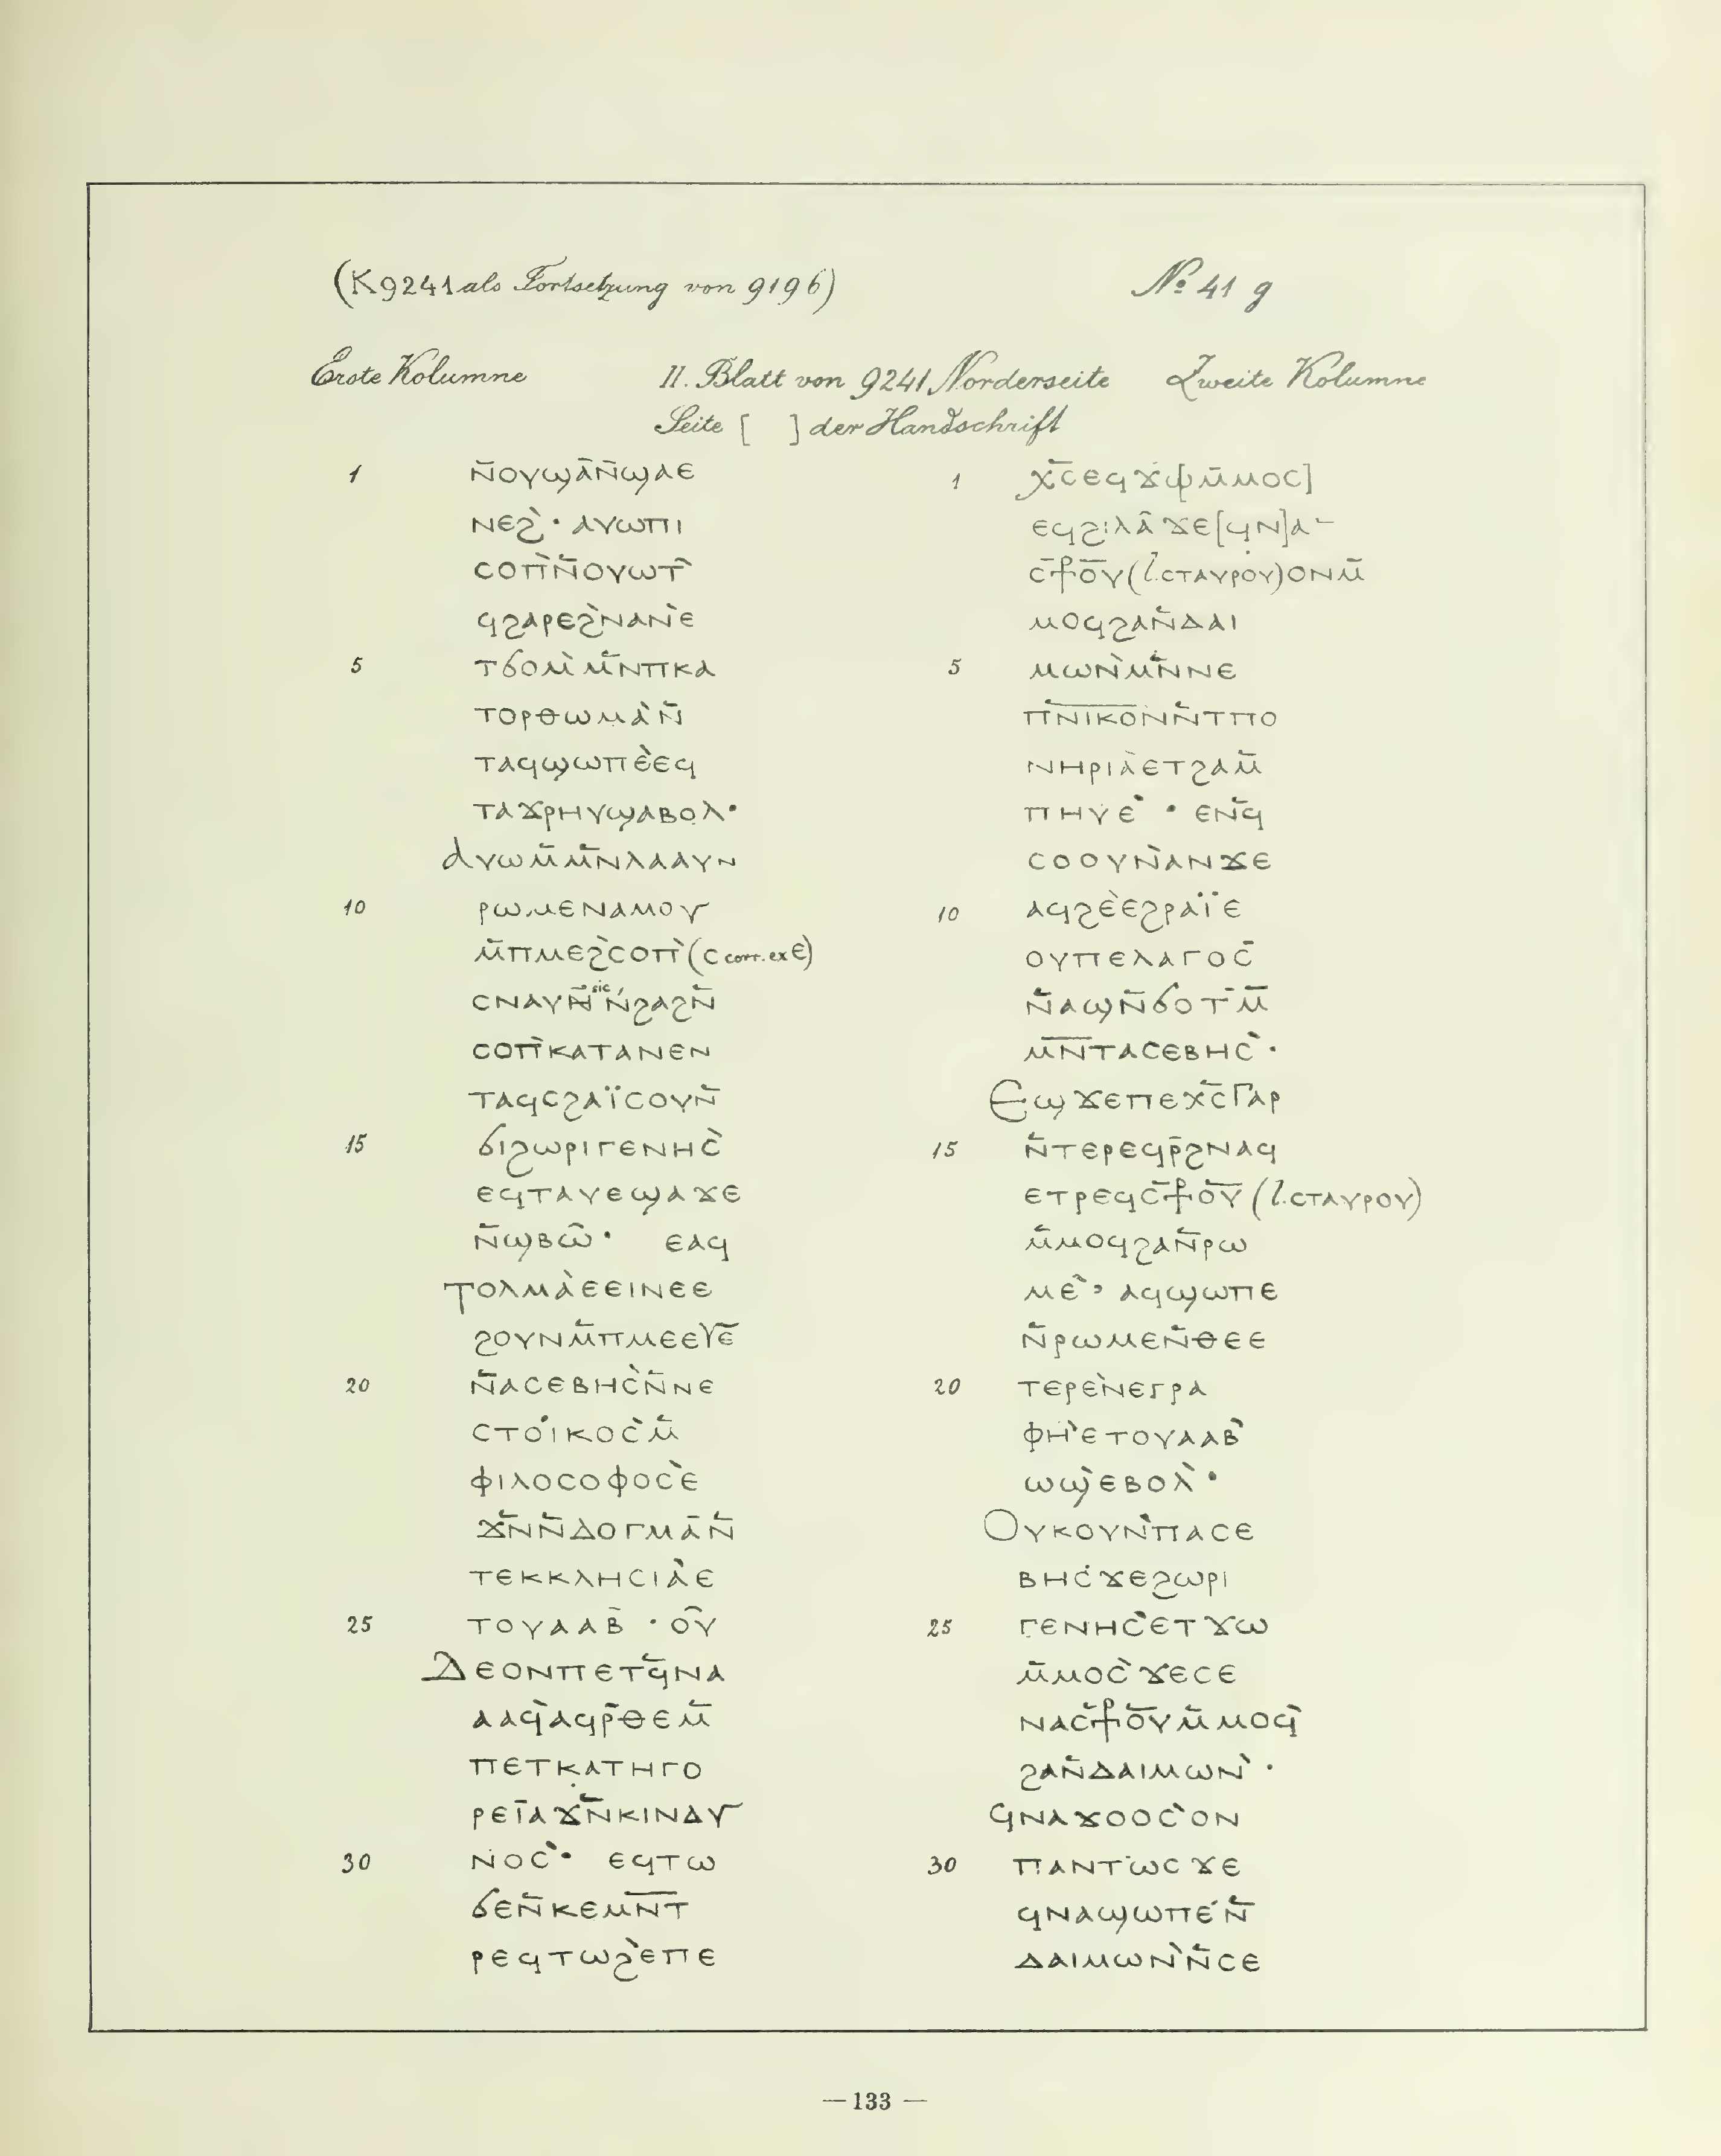 (K9241 als Fortsetzung von 9196)
№ 41 g
Erste Kolumne
II. Blatt von 9241 Norderseite
Zweite Kolumne
Seite [ ] der Handschrift
1 ⲛ̄ⲟⲩϣⲁ̄ⲛ̄ϣⲁⲉ
ⲛⲉϩ̀· ⲁⲩⲱⲡⲓ
ⲥⲟⲡ̀ⲛ̄ⲟⲩⲱⲧ̀
ϥϩⲁⲣⲉϩ̀ⲛⲁⲛ̀ⲉ
5 ⲧϭⲟⲙ̀ⲙ̄ⲛⲡⲕⲁ
ⲧⲟⲣⲑⲱⲙⲁ̀ⲛ̄
ⲧⲁϥϣⲱⲡⲉ̀ⲉϥ
ⲧⲁϫⲣⲏⲩϣⲁⲃⲟⲗ·
ⲁⲩⲱⲙ̄ⲙ̄ⲛⲗⲁⲁⲩⲛ
10 ⲣⲱⲙⲉⲛⲁⲙⲟⲩ
ⲙ̄ⲡⲙⲉϩ̀ⲥⲟⲡ̀ (ⲥ corr. ex ⲉ)
ⲥⲛⲁⲩⲛ̄ sic ⲛ̀ϩⲁϩⲛ̄
ⲥⲟⲡ̀ⲕⲁⲧⲁⲛⲉⲛ
ⲧⲁϥⲥϩⲁⲓ̈ⲥⲟⲩⲛ̄
15 ϭⲓϩⲱⲣⲓⲅⲉⲛⲏⲥ̀
ⲉϥⲧⲁⲩⲉϣⲁϫⲉ
ⲛ̄ϣⲃⲱ̂· ⲉⲁϥ
ⲧⲟⲗⲙⲁ̀ⲉⲉⲓⲛⲉⲉ
ϩⲟⲩⲛⲙ̄ⲡⲙⲉⲉⲩⲉ̄
20 ⲛ̄ⲁⲥⲉⲃⲏⲥ̀ⲛ̄ⲛⲉ
ⲥⲧⲟⲓ̇ⲕⲟⲥ̀ⲙ̄
ⲫⲓⲗⲟⲥⲟⲫⲟⲥ̀ⲉ
ϫ̄ⲛⲛ̄ⲇⲟⲅⲙⲁ̄ⲛ̄
ⲧⲉⲕⲕⲗⲏⲥⲓⲁ̀ⲉ
25 ⲧⲟⲩⲁⲁⲃ̄ · ⲟⲩ̂
ⲇⲉⲟⲛⲡⲉⲧϥ̄ⲛⲁ
ⲁⲁϥ̀ⲁϥⲣ̄ⲑⲉⲙ̄
ⲡⲉⲧⲕⲁⲧⲏⲅⲟ
ⲣⲉⲓ̄ⲁϫ̄ⲛⲕⲓⲛⲇⲩ
30 ⲛⲟⲥ̀· ⲉϥⲧⲱ
ϭⲉⲛ̄ⲕⲉⲙⲛ̄ⲧ
ⲣⲉϥⲧⲱϩ̀ⲉⲡⲉ
1 ⲭ̄ⲥⲉϥϫⲫ[ⲙ̄ⲙⲟⲥ]
ⲉϥϩⲓⲗⲁ̂ϫⲉ[ϥⲛ]ⲁ-
ⲥ̄⳨ⲟ̄ⲩ (l. ⲥⲧⲁⲩⲣⲟⲩ) ⲟⲛⲙ̄
ⲙⲟϥϩⲁⲛ̄ⲇⲁⲓ
5 ⲙⲱⲛ̀ⲙ̄ⲛⲛⲉ
ⲡ̄ⲛ̄ⲓ̄ⲕ̄ⲟ̄ⲛ̀ⲛ̄ⲧⲡⲟ
ⲛⲏⲣⲓⲁ̀ⲉⲧϩⲁⲙ̄
ⲡⲏⲩⲉ̀ · ⲉⲛϥ̄
ⲥⲟⲟⲩⲛ̀ⲁⲛϫⲉ
10 ⲁϥϩⲉ̀ⲉϩⲣⲁⲓ̈ⲉ
ⲟⲩⲡⲉⲗⲁⲅⲟⲥ̄
ⲛ̄ⲁϣⲛ̄ϭⲟⲧ̄ⲙ̄
ⲙⲛ̄ⲧⲁⲥⲉⲃⲏⲥ̀·
ⲉϣϫⲉⲡⲉⲭ̄ⲥⲅⲁⲣ
15 ⲛ̄ⲧⲉⲣⲉϥⲣ̄ϩⲛⲁϥ
ⲉⲧⲣⲉϥⲥ̄⳨ⲟ̄ⲩ (l. ⲥⲧⲁⲩⲣⲟⲩ)
ⲙ̄ⲙⲟϥϩⲁⲛ̄ⲣⲱ
ⲙⲉ̀· ⲁϥϣⲱⲡⲉ
ⲛ̄ⲣⲱⲙⲉⲛ̄ⲑⲉⲉ
20 ⲧⲉⲣⲉ̀ⲛⲉⲅⲣⲁ
ⲫⲏ̀ⲉⲧⲟⲩⲁⲁⲃ̀
ⲱϣ̀ⲉⲃⲟⲗ̀·
ⲟⲩⲕⲟⲩⲛ̀ⲡⲁⲥⲉ
ⲃⲏⲥ̇ϫⲉϩⲱⲣⲓ
25 ⲅⲉⲛⲏⲥ̀ⲉⲧϫⲱ
ⲙ̄ⲙⲟⲥ̀ϫⲉⲥⲉ
ⲛⲁⲥ̄⳨ⲟ̄ⲩⲙ̄ⲙⲟϥ̀
ϩⲁⲛ̄ⲇⲁⲓⲙⲱⲛ̀·
ϥⲛⲁϫⲟⲟⲥ̀ⲟⲛ
30 ⲡⲁⲛⲧⲱⲥϫⲉ
ϥⲛⲁϣⲱⲡⲉ̀ⲛ̄
ⲇⲁⲓⲙⲱⲛ̀ⲛ̄ⲥⲉ
— 133 —